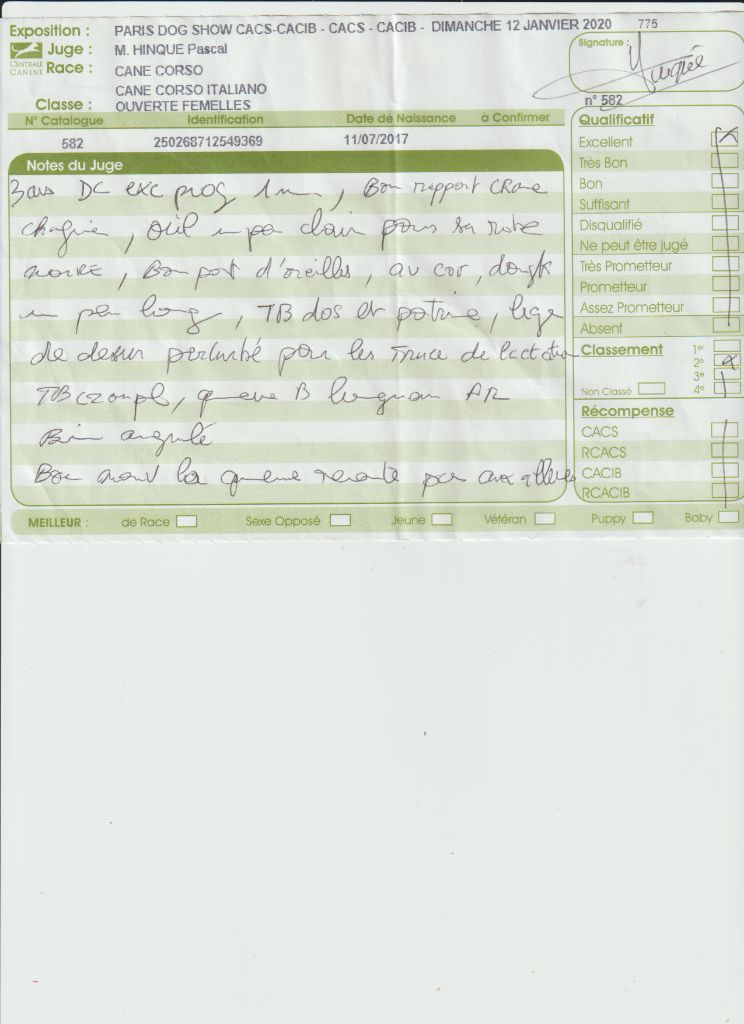 Exposition : PARIS DOG SHOW CACS-CACIB - CACS - CACIB - DIMANCHE 12 JANVIER 2020 775
Juge : M. HINQUE Pascal
Signature :
CENTRALE CANINE
Race : CANE CORSO
CANE CORSO ITALIANO
Classe : OUVERTE FEMELLES
n° 582
N° Catalogue Identification Date de Naissance à Confirmer
582 250268712549369 11/07/2017
Notes du Juge
3 ans DC exc prog 1m , Bon rapport CRane
, œil un peu clair pour sa robe
noire , Bon port d'oreilles , au cou , doigts
un peu long , TB dos et poitrine , ligne
de dessus perturbé pour les de lactation
TB , queue B AR
Bien angulé
Bon la queue remonte pas aux allures
Qualificatif
Excellent X
Très Bon
Bon
Suffisant
Disqualifié
Ne peut être jugé
Très Prometteur
Prometteur
Assez Prometteur
Absent
Classement 1er
2e X
3e
Non Classé 4e
Récompense
CACS
RCACS
CACIB
RCACIB
MEILLEUR : de Race Sexe Opposé Jeune Vétéran Puppy Baby